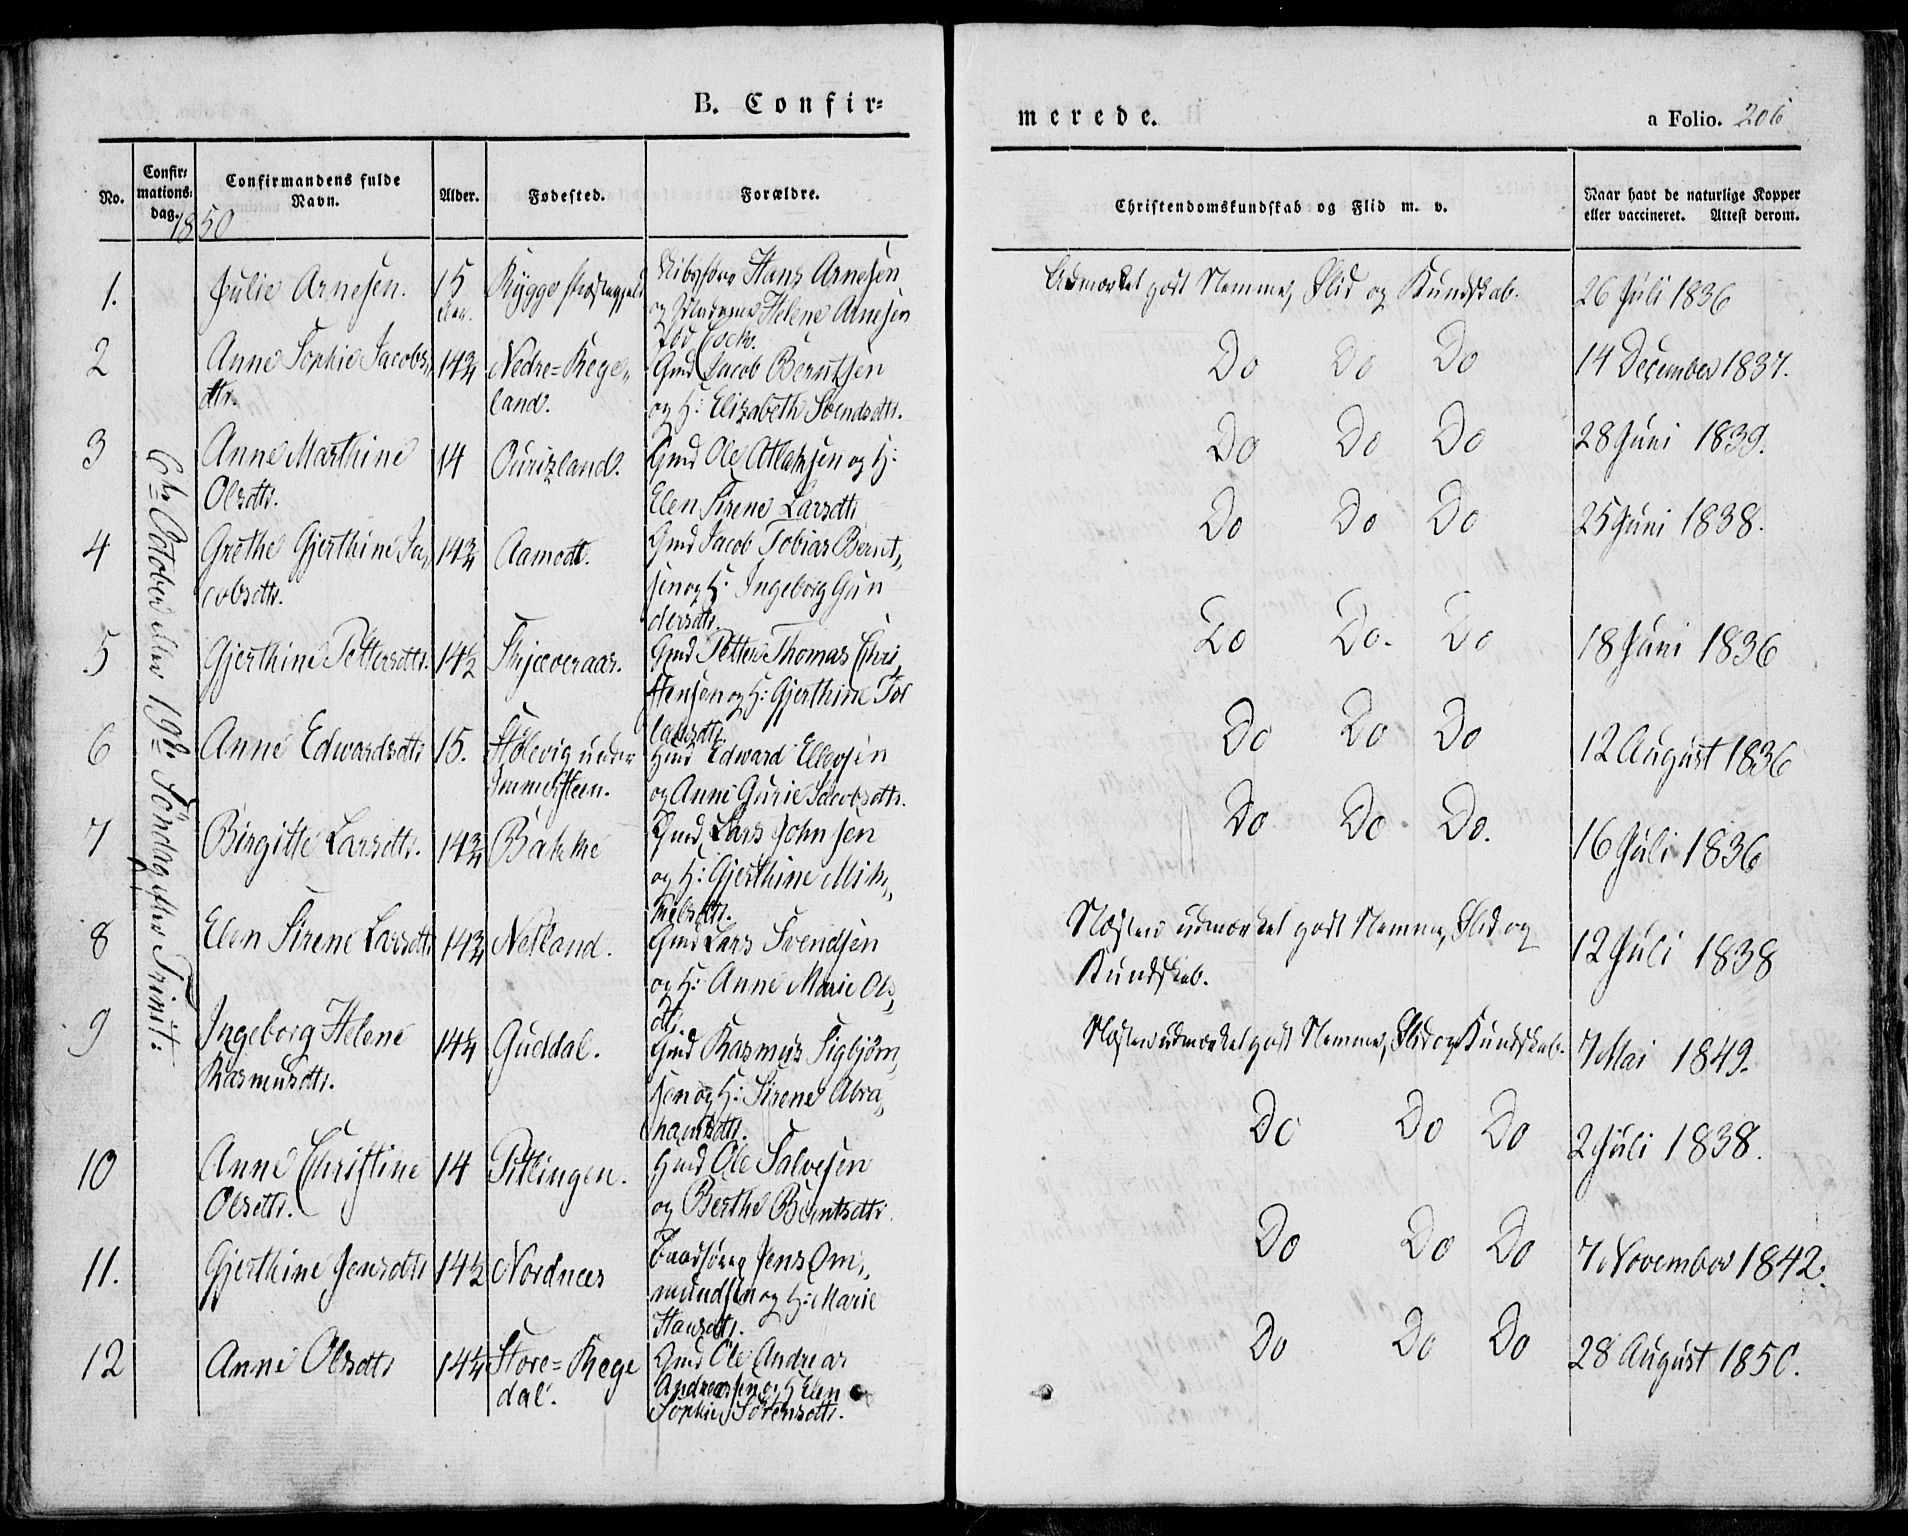 B. Confir=
merede.
a Folio. 206
No.
Confir=
mations=
dag.
Confirmandens fulde
Navn.
Alder.
Fødested.
Forældre.
Christendomskundskab og Flid m. v.
Naar havt de naturlige Kopper
eller vaccineret. Attest derom.
1850
6te October eller 19de Söndag efter Trinit:
1.
Julie Arnesen.
15
Rygge Præstegjeld
Hans Arnesen
og Helene Arnesen
fød
Udmærket godt Nemme, Flid og Kundskab.
26 Juli 1836
2
Anne Sophie Jacobs„
dtr.
14¾
Nedre=Rege„
land.
Gmd Jacob Berntsen
og H: Elizabeth Svendsdtr.
Do Do Do
14 December 1837.
3
Anne Marthine
Olsdtr.
14
Ourizland.
Gmd Ole Atlaksen og H:
Elen Sirene Larsdtr
Do Do Do
28 Juni 1839.
4
Grethe Gjerthine Ja„
cobsdtr.
14¾
Aamodt.
Gmd Jacob Tobias Bernt„
sen og H: Ingeborg Gun
dersdtr.
Do Do Do
25 Juni 1838.
5
Gjerthine Pettersdtr.
14½
Skjæveraas.
Gmd Petter Thomas Chri„
stensen og H: Gjerthine Tol
laksdtr.
Do Do. Do
18 Juni 1836
6
Anne Edwardsdtr
15.
Stölevig under
Immersteen.
Hmd Edward Ellevsen
og Anne Gurie Jacobsdtr.
Do Do Do
12 August 1836
7
Birgitte Larsdtr.
14¾
Bakke
Gmd Lars Johnsen
og H: Gjerthine Mik„
kelsdtr.
Do Do. Do.
16 Juli 1836
8
Elen Sirene Larsdtr
14¾
Netland.
Gmd Lars Svendsen
og H: Anne Marie Ols„
dtr.
Næsten udmærket godt Nemme, Flid og
Kundskab.
12 Juli 1838
9
Ingeborg Helene
Rasmusdtr.
14¼
Guddal.
Gmd Rasmus Sigbjörn„
sen og H: Sirene Abra„
hamsdtr.
Næsten udmærket godt Nemme, Flid og Kundskab.
7 Mai 1849.
10
Anne Christine
Olsdtr.
14
Pitlingen.
Hmd Ole Salvesen
og Berthe Berntsdtr.
Do Do Do
2 Juli 1838.
11.
Gjerthine Jensdtr
14½
Nordnees
Jens Om„
mundsen og H: Marie
Hansdtr.
Do Do Do
7 November 1842.
12
Anne Olsdtr
14¼
Store=Rege
dal.
Gmd Ole Andreas
Andreassen og H Elen
Sophie Sörensdtr.
Do Do Do
28 August 1850.